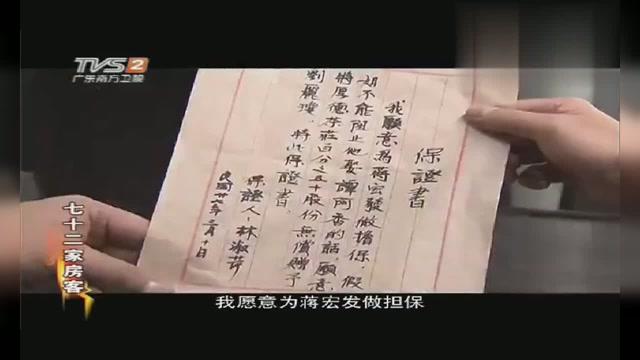 TVS2
广东南方卫视
保證書
我願意為蔣宏發做擔保,假
如不能阻止他娶譚阿香的話,願意
將厚德東莊百分之五十股份無償贈予
劉麗瓊,特此保證書。
保證人:林淑芬
民國廿六年二月十日
七十二家房客
我愿意为蒋宏发做担保